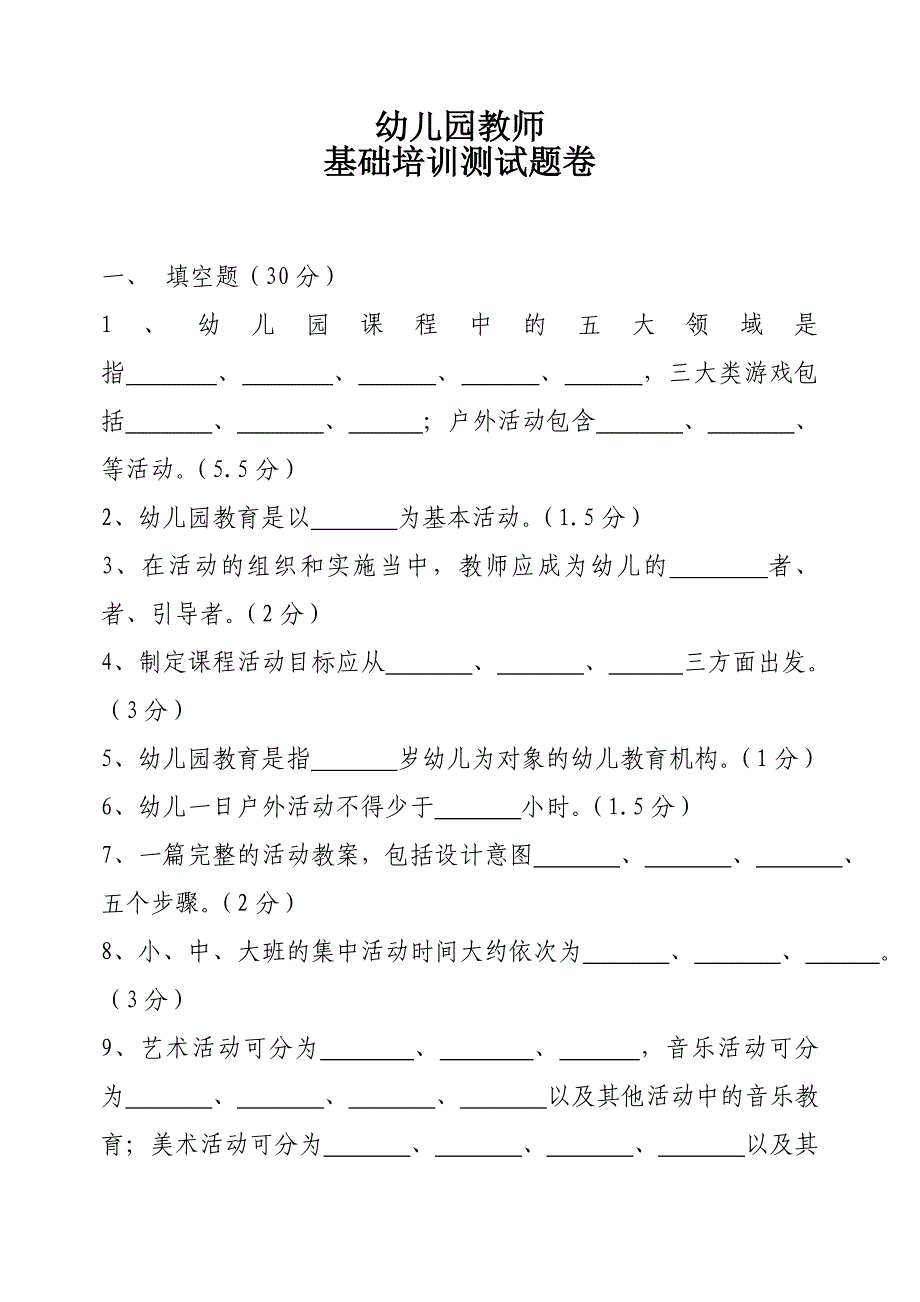 幼儿园教师
基础培训测试题卷
一、 填空题（30分）
1、幼儿园课程中的五大领域是
指_______、_______、______、______、______，三大类游戏包
括_______、_______、______；户外活动包含_______、_______、
等活动。（5.5分）
2、幼儿园教育是以_______为基本活动。（1.5分）
3、在活动的组织和实施当中，教师应成为幼儿的________者、
者、引导者。（2分）
4、制定课程活动目标应从_______、_______、______三方面出发。
（3分）
5、幼儿园教育是指_______岁幼儿为对象的幼儿教育机构。（1分）
6、幼儿一日户外活动不得少于_______小时。（1.5分）
7、一篇完整的活动教案，包括设计意图_______、_______、_______、
五个步骤。（2分）
8、小、中、大班的集中活动时间大约依次为_______、_______、______。
（3分）
9、艺术活动可分为_______、_______、______，音乐活动可分
为_______、_______、_______、_______以及其他活动中的音乐教
育；美术活动可分为_______、_______、_______、_______以及其